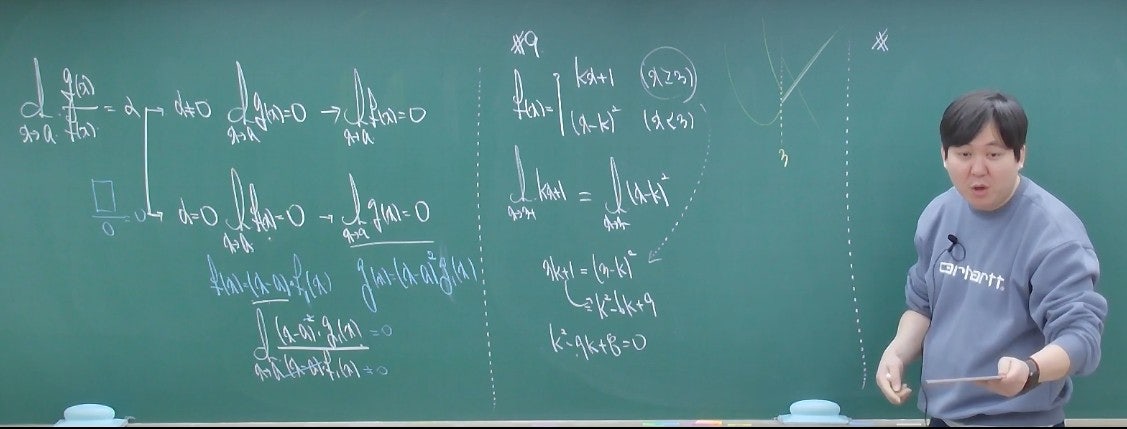 lim x→a g(x)/f(x) = α
→ α≠0 lim x→a g(x)=0 → lim x→a f(x)=0
→ α=0 lim x→a f(x)=0 → lim x→a g(x)=0
□/0 = 0
f(x)=(x-a)·f₁(x) g(x)=(x-a)²g₁(x)
lim x→a (x-a)²·g₁(x)/(x-a)·f₁(x)
#9
f(x)= kx+1 (x≥3)
(x-k)² (x<3)
lim kx+1 = lim (x-k)²
3k+1=(3-k)²
=k²-6k+9
k²-9k+8=0
3
#
carhartt